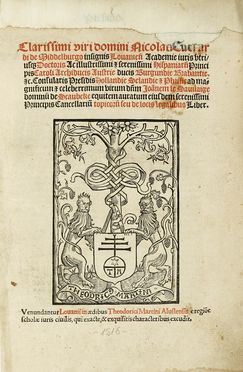 Clarissimi viri domini Nicolai Euerar
di de Middelburgo insignis Louanien̄ Academie iuris vtri/
usq̄ Doctoris Ac illustrissimi ⁊ serenissimi Hispaniarū Princi
pis Caroli Archiducis Austrie ducis Burgundie Brabantie
⁊c. Consularis Presidis Hollandie Selandie ⁊ Phrisie ad ma
gnificum ⁊ celeberrimum virum dn̄m Joānem le Sauuaige
dominū de Scaubeke equitem auratum eiusdem serenissimi
Principis Cancellariū topicorū seu de locis legalibus Liber.
THEODRIC MARTINI
Venundantur Louanii in ædibus Theodorici Martini Alustensis e regiōe
scholæ iuris ciuilis, qui exacte, & exquisitis characteribus excudit.
1516